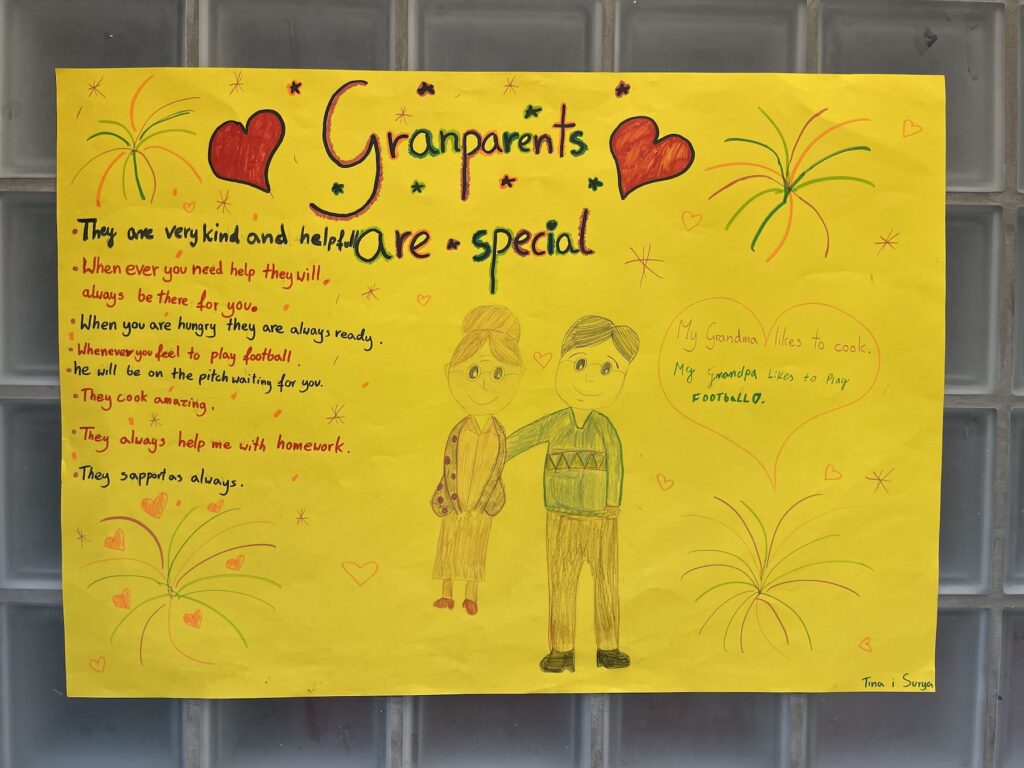 Granparents
are special
• They are very kind and helpfull
• When ever you need help they will
always be there for you.
• When you are hungry they are always ready.
• Whenever you feel to play football
• he will be on the pitch waiting for you.
• They cook amazing.
• They always help me with homework.
• They sapport as always.
My Grandma likes to cook.
My Grandpa likes to play
FOOTballO.
Tina i Surya